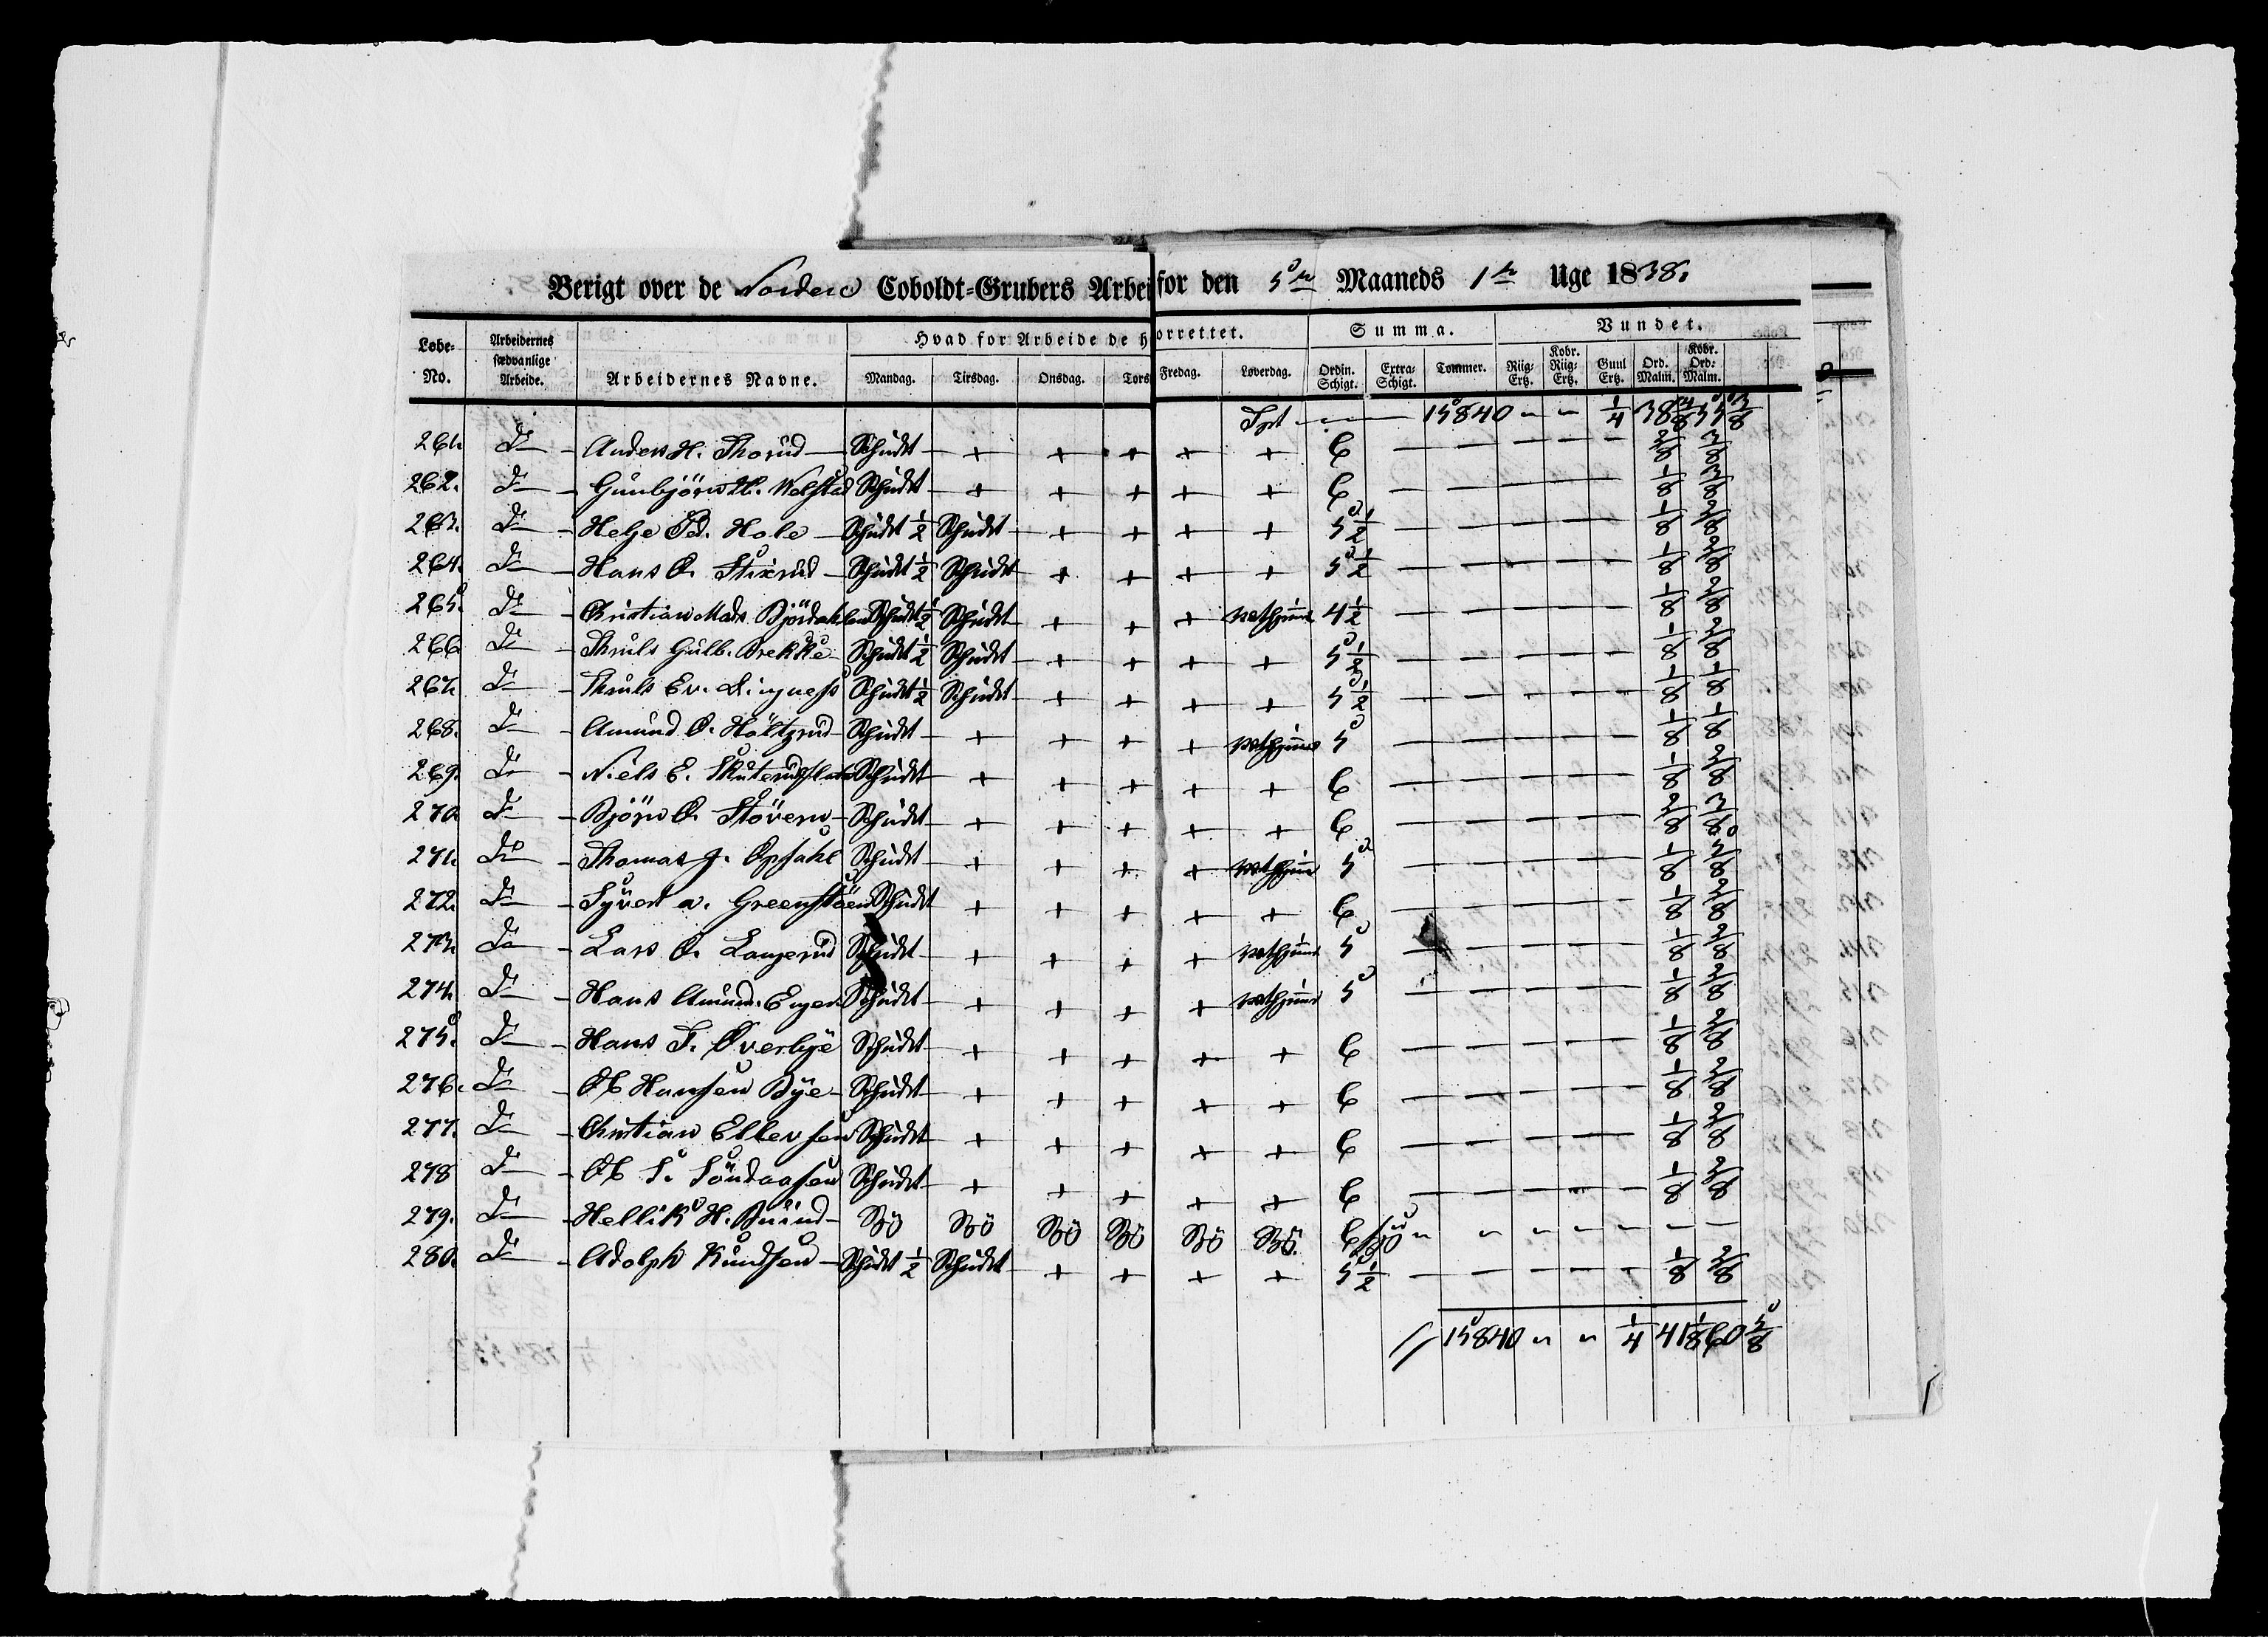 Berigt over de Nordere Coboldt-Grubers Arbei for den 5te Maaneds 1te Uge 1838.
Lobe-No. Arbeidernes sædvanlige Arbeide. Arbeidernes Navne. Hvad for Arbeide de h orrettet. Summa. Vundet.
Mandag. Tirsdag. Onsdag. Tors Fredag. Loverdag. Ordin. Schigt. Extra-Schigt. Tommer. Riig-Ertz. Kobr. Riig-Ertz. Guul Ertz. Ord. Malm. Kobr. Ord: Malm.
Tpt — — 15840 " " 1/4 38 4/8 55 3/8
261. Do — Anders H. Thorud — Schidt + + + + + 6 — — — — — 2/8 3/8
262. Do — Gunbjörn H. Wolstad Schidt + + + + + 6 — — — — — 1/8 3/8
263. Do — Helge Ped. Hole — Schidt 1/2 Schidt + + + + 5 1/2 — — — — — 1/8 2/8
264. Do — Hans O. Stixrud — Schidt 1/2 Schidt + + + + 5 1/2 — — — — — 1/8 2/8
265. Do — Christian Mads. Björdahlen Schidt 1/2 Schidt + + + 4 1/2 — — — — — 1/8 2/8
266 Do — Thruls Gulb. Brekke Schidt 1/2 Schidt + + + + 5 1/2 — — — — — 1/8 2/8
267. Do — Thruls Ev. Dingness Schidt 1/2 Schidt + + + + 5 1/2 — — — — — 1/8 1/8
268. Do — Amund O. Höltzrud Schidt + + + + 5 — — — — — 1/8 1/8
269. Do — Niels E. Skuterudflata Schidt + + + + + 6 — — — — — 1/8 2/8
270 Do — Björn O. Stövern — Schidt + + + + + 6 — — — — — 2/8 3/8
271. Do — Thomas J. Opsahl Schidt + + + + 5 — — — — — 1/8 2/8
272. Do — Syvert A. Greensteen Schidt + + + + + 6 — — — — — 1/8 2/8
273. Do — Lars O. Langerud Schidt + + + + 5 — — — — — 1/8 2/8
274. Do — Hans Amund. Enger Schidt + + + + 5 — — — — — 1/8 2/8
275. Do — Hans T. Overbye Schidt + + + + + 6 — — — — — 1/8 2/8
276. Do — Ol Hansen Bye — Schidt + + + + + 6 — — — — — 1/8 2/8
277. Do — Christian Ellevsen Schidt + + + + + 6 — — — — — 1/8 2/8
278 Do — Ol S. Söndaasen Schidt + + + + + 6 — — — — — 1/8 2/8
279. Do — Hellik H. Buind — Sÿö Sÿö Sÿö Sÿö Sÿö Sÿö. 6 sÿö " " " — — — —
280. Do — Adolph Knudsen — Schidt 1/2 Schidt + + + + 5 1/2 — — — — — 1/8 2/8
// 15840 " " 1/4 41 1/8 60 5/8